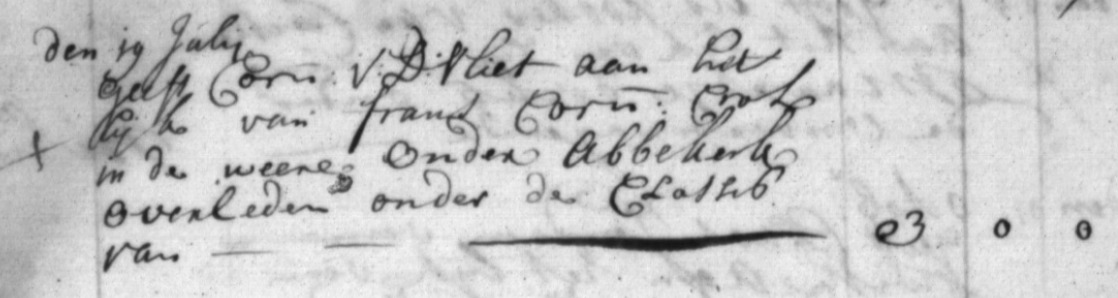 den 19 Julij
geeft Corn: V: D: Vliet aan het
lijk van frans Corn: Crol
in de weere onder Abbekerk
overleden onder de Classis
van — — — 3 0 0